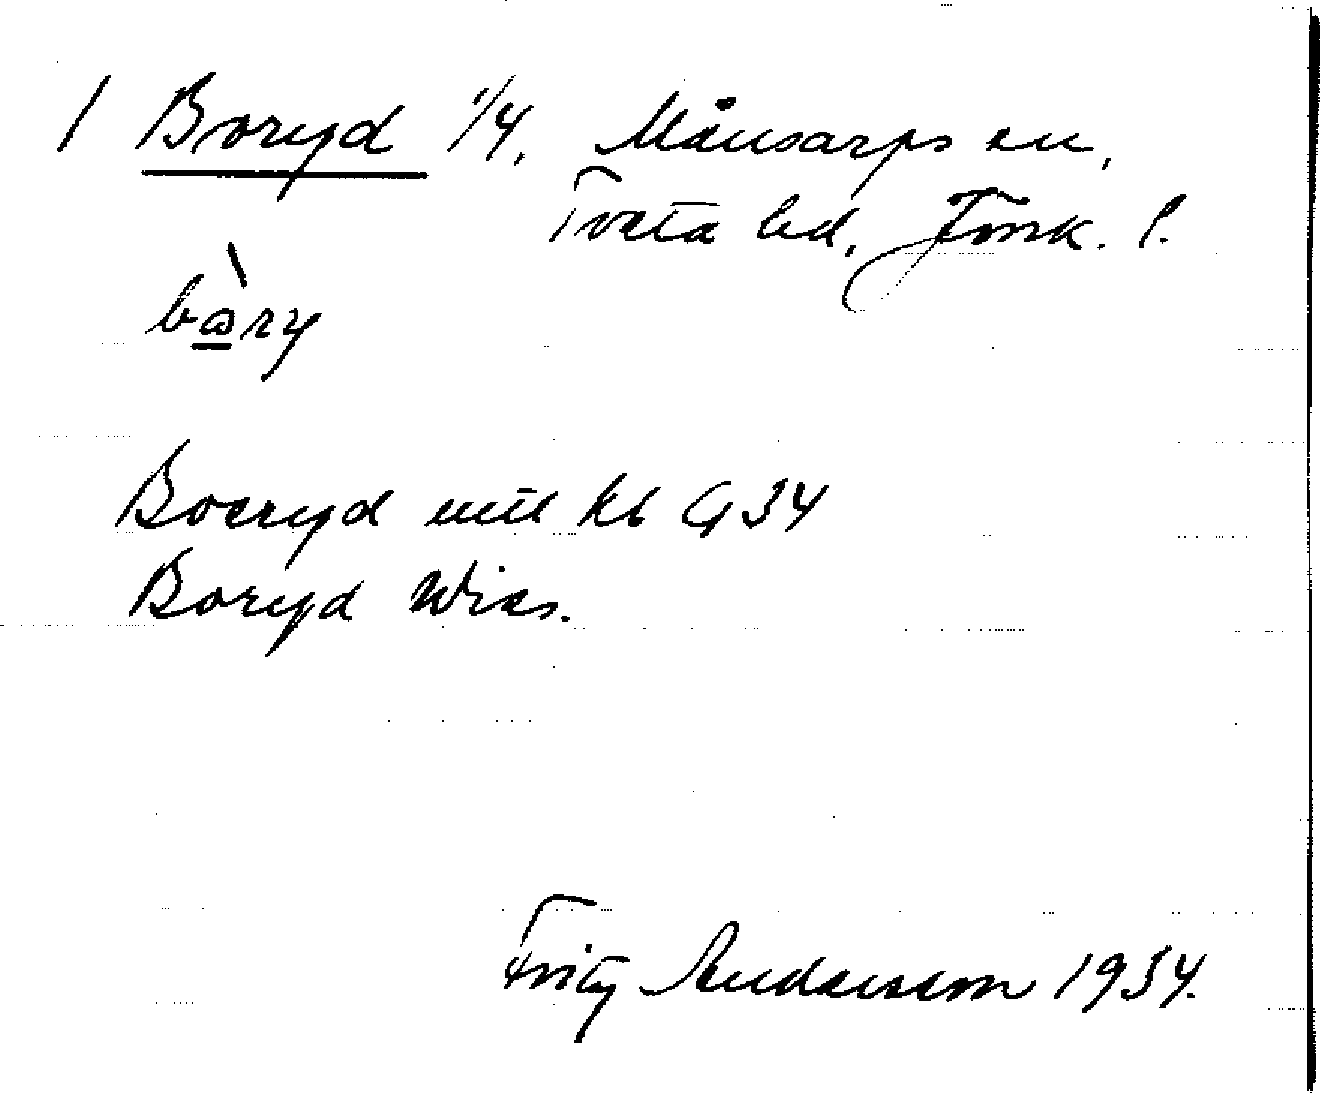 1 Boryd 1/4, Månsarps sn,
Tveta hd, Jönk. l.
bo̲̊̀ry
Boeryd mtl kb G 34
Boryd Wies.
Fritz Andersson 1934.